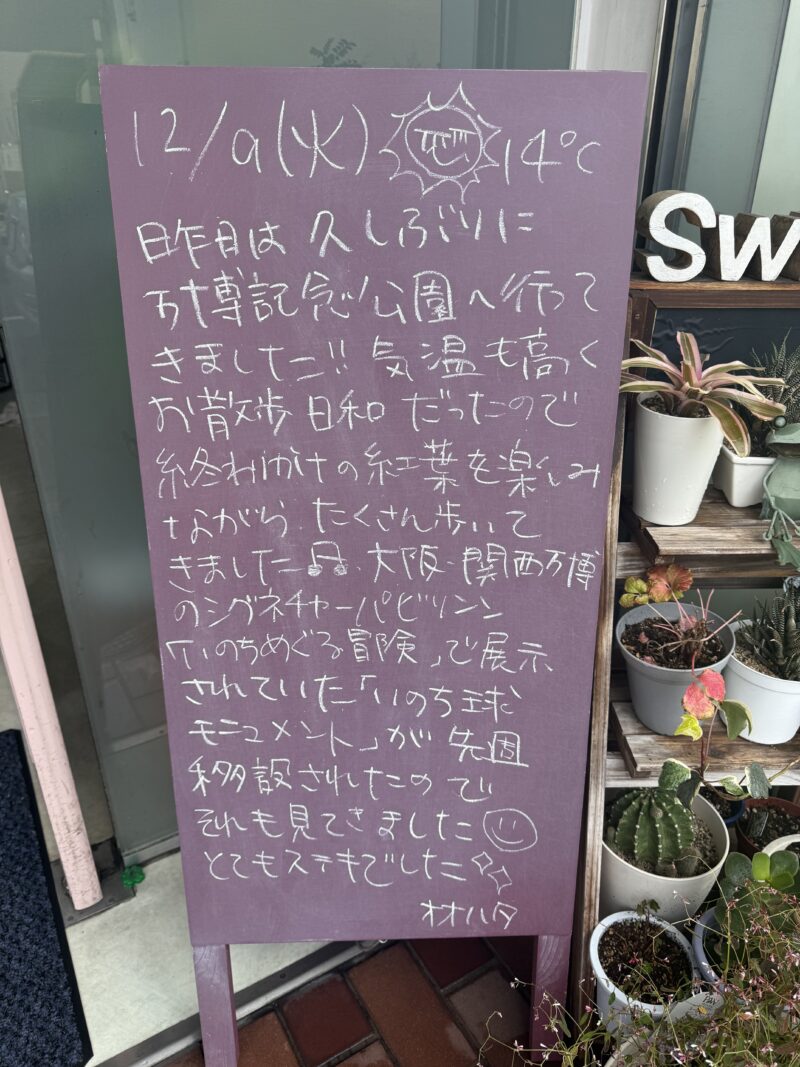 12/9(火) 14℃
昨日は 久しぶりに
万博記念公園へ行って
きました!! 気温も高く
お散歩日和だったので
終わりかけの紅葉を楽しみ
ながら、たくさん歩いて
きました♫. 大阪・関西万博
のシグネチャーパビリオン
「いのちめぐる冒険」で展示
されていた「いのち球
モニュメント」が先週
移設されたので
それも見てきました☺
とてもステキでした✧✧
オオハタ
SW